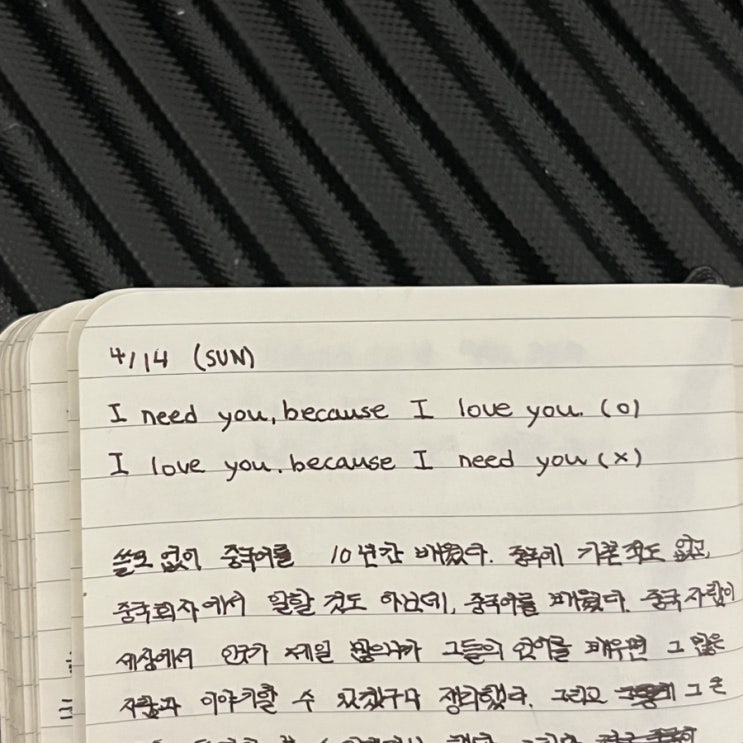 4/14 (SUN)
I need you, because I love you. (o)
I love you. because I need you (x)
쓸모 없이 중국어를 10년간 배웠다. 중국에 가본적도 없고,
중국회사에서 일할 것도 아닌데, 중국어를 배웠다. 중국 사람이
세상에서 인구가 제일 많으니까 그들의 언어를 배우면 그 많은
사람과 이야기할 수 있겠구나 생각했다. 그리고 그